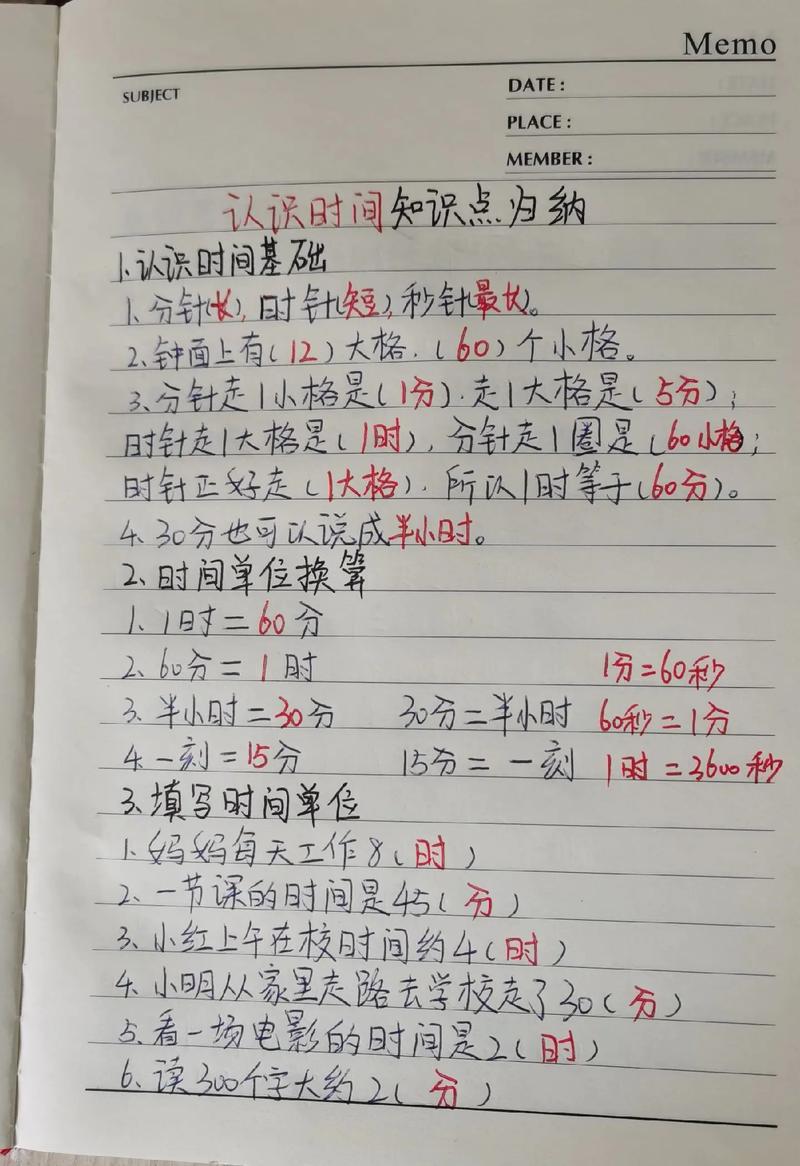 Memo
SUBJECT
DATE:
PLACE:
MEMBER:
认识时间知识点归纳
1.认识时间基础
1、分针(长),时针(短),秒针(最长)。
2、钟面上有(12)大格.(60)个小格。
3、分针走1小格是(1分).走1大格是(5分);
时针走1大格是(1时),分针走1圈是(60小格;
时针正好走(1大格).所以1时等于(60分)。
4、30分也可以说成半小时。
2、时间单位换算
1、1时=60分
2、60分=1时 1分=60秒
3、半小时=30分 30分=半小时 60秒=1分
4、一刻=15分 15分=一刻 1时=3600秒
3、填写时间单位
1、妈妈每天工作8(时)
2、一节课的时间是45(分)
3、小红上午在校时间约4(时)
4、小明从家里走路去学校走了30(分)
5、看一场电影的时间是2(时)
6、读300个字大约2(分)